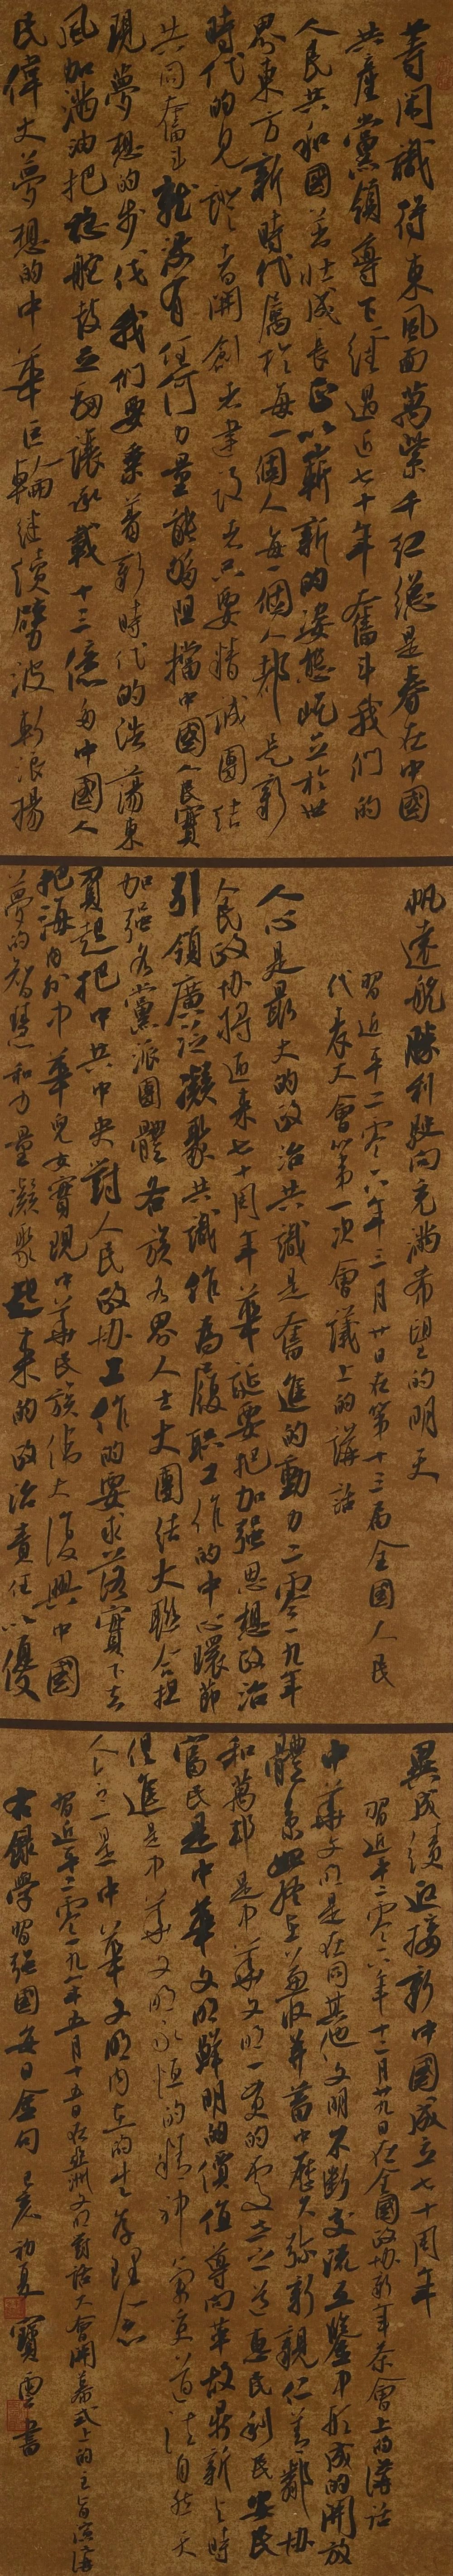 等閑識得東風面萬紫千紅總是春在中國
共產黨領導下經過近七十年奮斗我們的
人民共和國茁壯成長正以嶄新的姿態屹立於世
界東方新時代屬於每一個人每一個人都是新
時代的見證者開創者建設者只要精誠團結
共同奮斗就沒有任何力量能夠阻擋中國人民實
現夢想的步伐我們要乘着新時代的浩蕩東
風加滿油把穩舵鼓足勁讓承載十三億多中國人
民偉大夢想的中華巨輪繼續劈波斬浪揚
帆遠航勝利駛向充滿希望的明天
習近平二零一八年三月廿日在第十三屆全國人民
代表大會第一次會議上的講話
人心是最大的政治共識是奮進的動力二零一九年
人民政協將迎來七十周年華誕要把加強思想政治
引領廣泛凝聚共識作為履职工作的中心環節
加强各黨派團體各族各界人士大團结大聯合担
負起把中共中央對人民政协工作的要求落實下去
把海内外中華兒女實現中華民族偉大復興中國
夢的智慧和力量凝聚起来的政治責任以優
異成績迎接新中國成立七十周年
習近平二零一八年十二月廿九日在全國政协新年茶會上的講話
中華文明是在同其他文明不斷交流互鑒中形成的開放
體系始終在兼收并蓄中歷久弥新親仁善鄰协
和萬邦是中華文明一貫的處世之道惠民利民安民
富民是中華文明鮮明的價值導向革故鼎新与時
俱進是中華文明永恒的精神氣質道法自然天
人合一是中華文明内在的生存理念
習近平二零一九年五月十五日在亞洲文明對話大會開幕式上的主旨演講
右錄學習强國每日金句 己亥初夏 寶雲書